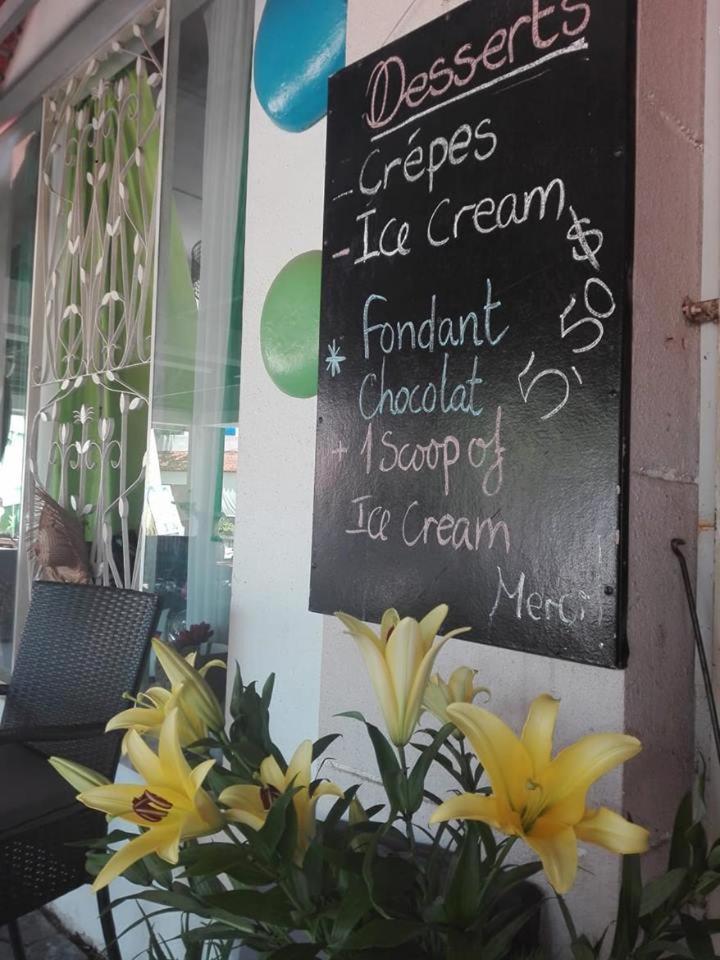 Desserts
- Crêpes
- Ice Cream
* Fondant
Chocolat
5,50 $
+ 1 Scoop of
Ice Cream
Merci